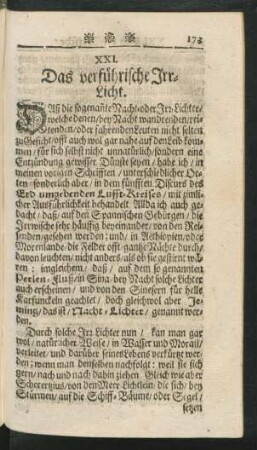 173
XXI.
Das verführische Irr-
Licht.
DAß die sogenañte Nacht- oder Irr-Lichter/
welche denen/ bey Nacht wandrenden/ rei-
tenden/ oder fahrenden Leuten nicht selten
zu Gesicht/ offt auch wol gar nahe auf den Leib kom-
men/ für sich selbst nicht unnatürlich/ sondern eine
Entzündung gewisser Dünste seyen/ habe ich/ in
meinen vorigen Schrifften/ unterschiedlicher Or-
ten/ sonderlich aber/ in dem fünfften Discurs des
Erd umgebenden Lufft-Kreises/ mit zimli-
cher Ausführlichkeit behandelt. Allda ich auch ge-
dacht/ daß/ auf den Spannischen Gebürgen/ die
Irrwische sehr häuffig beyeinander/ von den Rei-
senden/ gesehen werden; und/ in Aethiopien/ oder
Morenlande/ die Felder offt gantze Nächte durch/
davon leuchten/ nicht anders/ als ob sie gestirnt wä-
ren: ingleichem/ daß/ auf dem so genannten
Perlen-Fluß/ in Sina/ bey Nacht solche Lichter
auch erscheinen/ und von den Sinesern für helle
Karfunckeln geachtet/ doch gleichwol aber Je-
ming/ das ist/ Nacht-Lichter/ genannt wer-
den.
Durch solche Irr-Lichter nun/ kan man gar
wol/ natürlicher Weise/ in Wasser und Morast/
verleitet/ und darüber seines Lebens verkürtzt wer-
den; wenn man denselben nachfolgt: weil sie sich
fern/ nach und nach dahin ziehen. Gleich wie aber
von den Meer-Lichtlein/ die sich/ bey
Stürmen/ auf die Schiff-Bäume/ oder Segel/
setzen